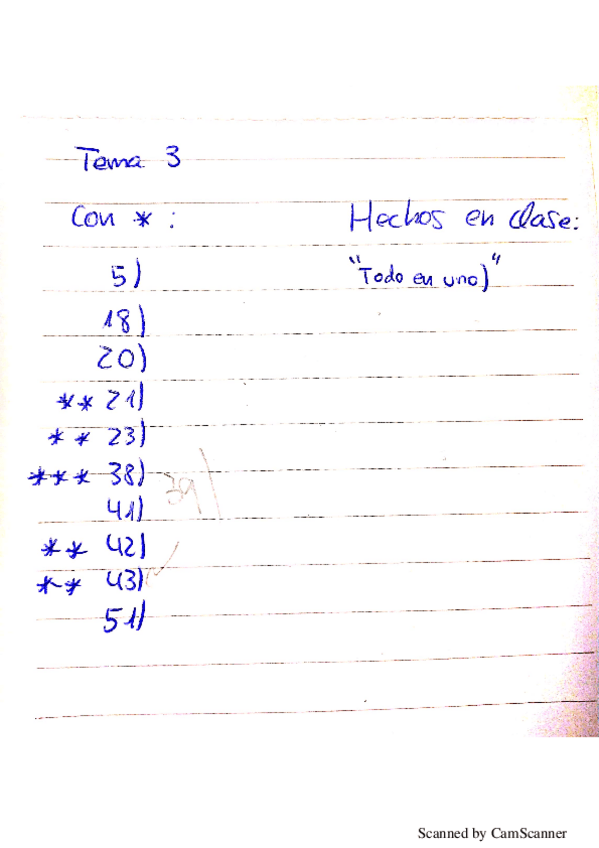 Tema 3
Con * :
Hechos en clase:
5)
"Todo en uno)"
18)
20)
** 21)
** 23)
*** 38)
41)
** 42)
** 43)
51)
Scanned by CamScanner